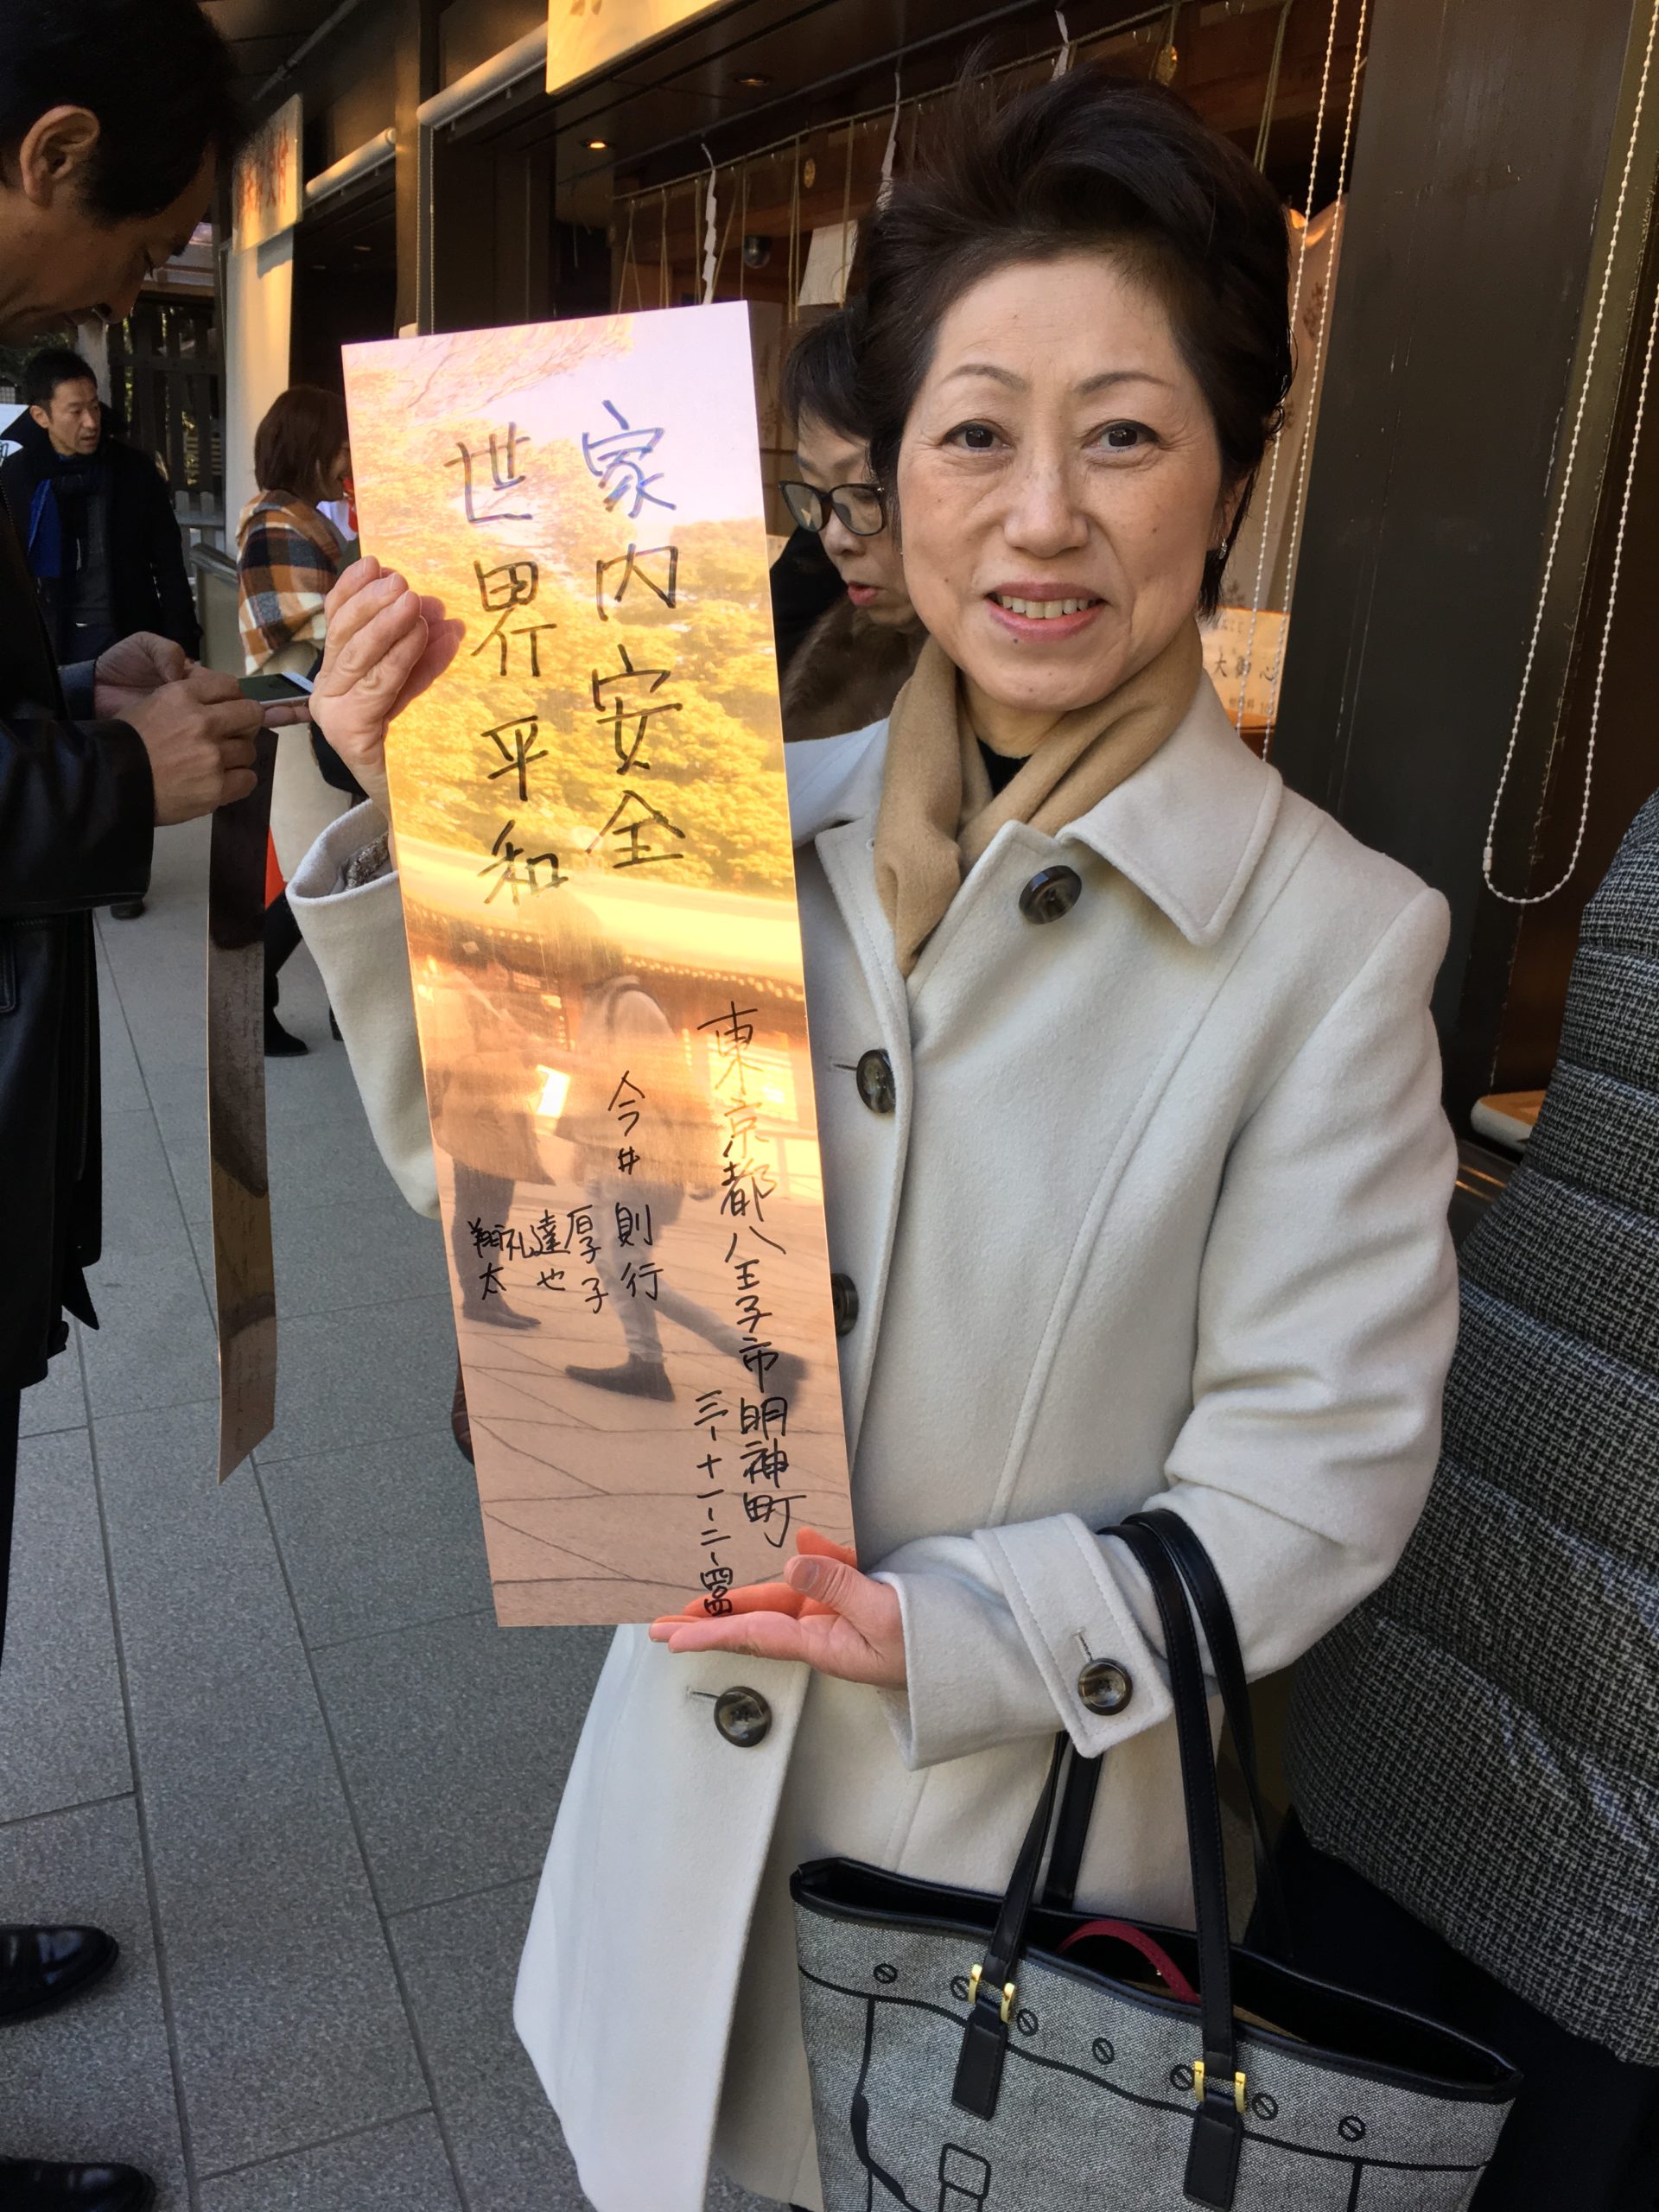 家内安全
世界平和
東京都八王子市明神町
三-十一-二-四四
今井 則行
厚子
達也
礼
翔太
大御心